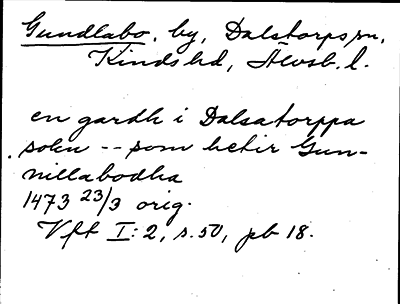 Gundlabo, by, Dalstorps sn,
Kinds hd, Älvsb. l.
en gardh i Dalsatorppa
sokn -- som hetir Gun-
nillabodha
1473 23/3 orig.
Vft I:2, s.50, pb 18.